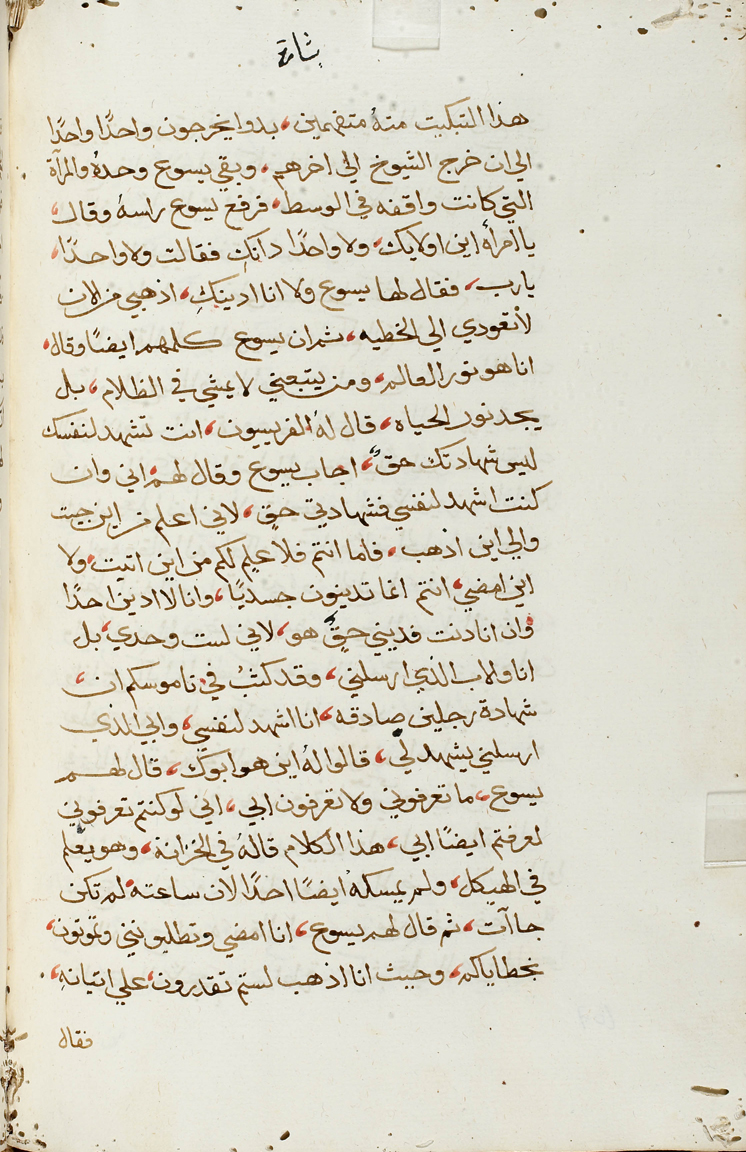 بشارة
هذا التبكيت منهُ متفهمين، بدوا يخرجون واحدًا واحدًا
الي ان خرج الشيوخ الي اخرهم، وبقي يسوع وحدهُ والمرآة
التي كانت واقفه في الوسط، فرفع يسوع راسهُ وقال،
يا امرأه اين اولايك، ولا واحدًا دانكِ فقالت ولا واحدًا،
يارب، فقال لها يسوع ولا انا ادينكِ، اذهبي من الان
لا تعودي الي الخطيه، ثم ان يسوع كلمهم ايضًا وقال،
انا هو نور العالم، ومن يتبعني لا يمشي في الظلام، بل
يجد نور الحياه، قال لهُ الفريسيون، انت تشهد لنفسك
ليس شهادتك حقٌ، اجاب يسوع وقال لهم، اني وان
كنت اشهد لنفسي فشهادتي حق، لاني اعلم من اين جيت
والي اين اذهب، فاما انتم فلا علم لكم من اين اتيت، ولا
اين امضي، انتم انما تدينون جسديًا، وانا لا ادين احدًا
وان انا دنت فديني حقٌ هو، لاني لست وحدي، بل
انا والاب الذي ارسلني، وقد كتبُ في ناموسكم ان،
شهادة رجلين صادقه، انا اشهد لنفسي، وابي الذي
ارسلني يشهد لي، قالوا لهُ اين هو ابوك، قال لهم
يسوع، ما تعرفوني ولا تعرفون ابي، اني لو كنتم تعرفوني
لعرفتم ايضًا ابي، هذا الكلام قالهُ في الخزانة، وهو يعلم
في الهيكل، ولم يمسكهُ ايضًا احدًا لان ساعته لم تكن
جاآت، ثم قال لهم يسوع، انا امضي وتطلبونني وتموتون،
بخطاياكم، وحيث انا اذهب لستم تقدرون، علي اتيانهِ،
فقال